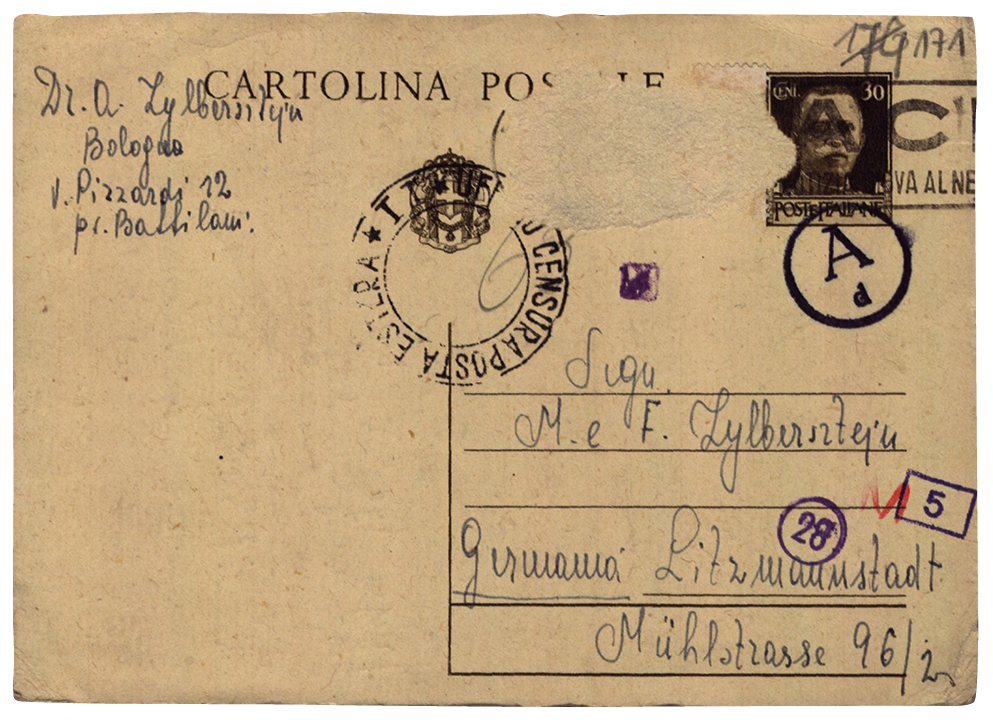 171
CARTOLINA POS LE
Dr. A. Zylbersztejn
Bologna
v. Pizzardi 12
pr. Battilani.
CENT. 30
POSTE ITALIANE
VA AL NE
CENSURA POSTA ESTERA
A
d
Sign.
M. e F. Zylbersztejn
5
28
Germania Litzmannstadt
Mühlstrasse 96/2